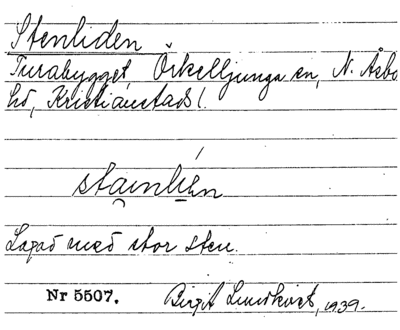 Stenliden
Turabygget Örkelljunga sn, N. Åsbo
hd, Kristianstads l.
stainlién
med stor sten.
Nr 5507. Birgit Lundkvist, 1939.